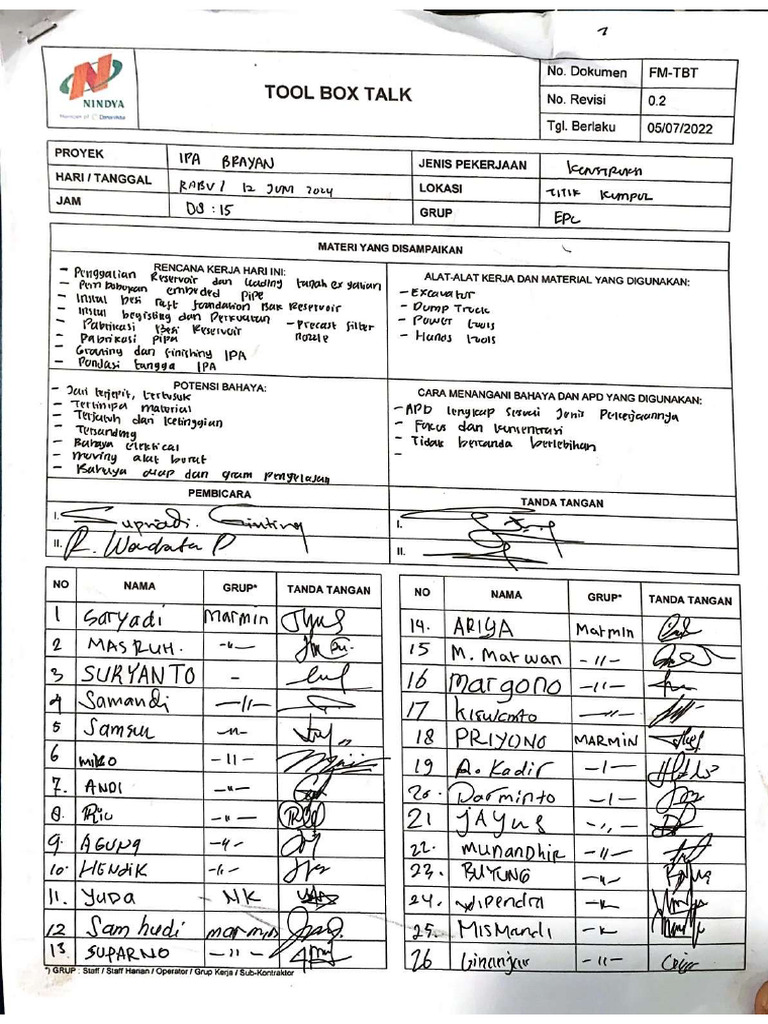 NINDYA
Member of Danareksa
TOOL BOX TALK
No. Dokumen FM-TBT
No. Revisi 0.2
Tgl. Berlaku 05/07/2022
PROYEK IPA BRAYAN
HARI / TANGGAL RABU / 12 JUNI 2024
JAM 08:15
JENIS PEKERJAAN KONSTRUKSI
LOKASI TITIK KUMPUL
GRUP EPC
MATERI YANG DISAMPAIKAN
RENCANA KERJA HARI INI:
- Penggalian Reservoir dan loading tanah ex galian
- Pembobokan embeded pipe
- Instal besi raft foundation Bak Reservoir
- Instal begisting dan Perkuatan
- Pabrikasi Besi Reservoir - Precast filter
- Pabrikasi pipa nozzle
- Grouting dan finishing IPA
- Pondasi tangga IPA
ALAT-ALAT KERJA DAN MATERIAL YANG DIGUNAKAN:
- Excavator
- Dump Truck
- Power tools
- Hands tools
POTENSI BAHAYA:
- Jari terjepit, tertusuk
- Tertimpa material
- Terjatuh dari ketinggian
- Tersandung
- Bahaya elektical
- Moving alat berat
- Bahaya asap dan gram pengelasan
CARA MENANGANI BAHAYA DAN APD YANG DIGUNAKAN:
- APD lengkap sesuai Jenis Pekerjaannya
- Fokus dan konsentrasi
- Tidak bercanda berlebihan
-
PEMBICARA
I. Supriadi. Ginting
II. R. Wardata P
TANDA TANGAN
I.
II.
NO NAMA GRUP* TANDA TANGAN
1 Saryadi Marmin
2 MASRUH. -"-
3 SURYANTO -
4 Samandi -"-
5 Samsul -"-
6 miko -"-
7. ANDI -"-
8. Rio -"-
9. AGUNG -"-
10. HENDIK -"-
11. YUDA NK
12 Samhudi marmin
13. SUPARNO -"-
NO NAMA GRUP* TANDA TANGAN
14. ARIYA Marmin
15 M. Marwan -"-
16 margono -"-
17 Kiswanto -"-
18 PRIYONO MARMIN
19 A. Kadir -"-
20. Darminto -"-
21 JAYUS -"-
22. MUNANDHIR -"-
23. BUYUNG -"-
24. Wipendra -"-
25. MisMandi -"-
26 Ginanjar -"-
*) GRUP : Staff / Staff Harian / Operator / Grup Kerja / Sub-Kontraktor